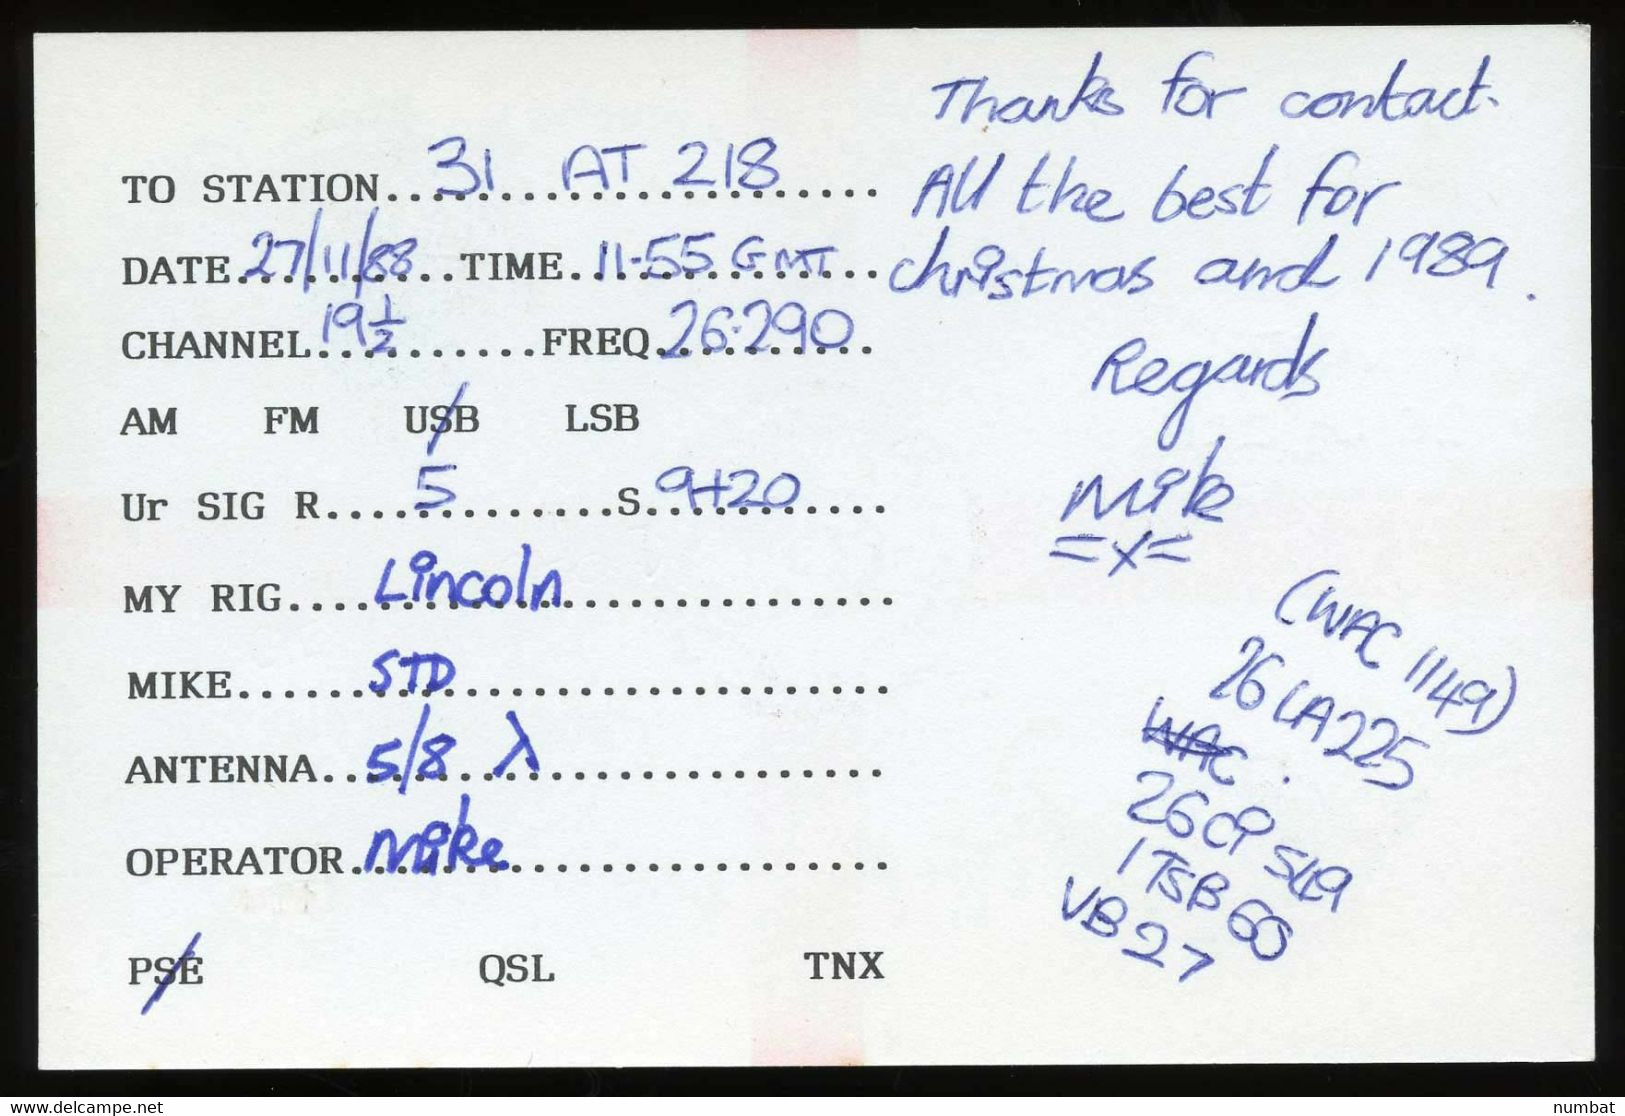 TO STATION...31 AT 218...
DATE 27/11/88 TIME 11.55 GMT
CHANNEL 19 1/2 FREQ 26.290
AM FM USB LSB
Ur SIG R 5 S 9+20
MY RIG Lincoln
MIKE STD
ANTENNA 5/8 λ
OPERATOR Mike
PSE QSL TNX
Thanks for contact.
All the best for
Christmas and 1989.
Regards
Mike
=x=
(WAC 1149)
26 LA 225
WAC.
26 CI 549
1 TSB 60
VB 27
Delcampe.net
numbat